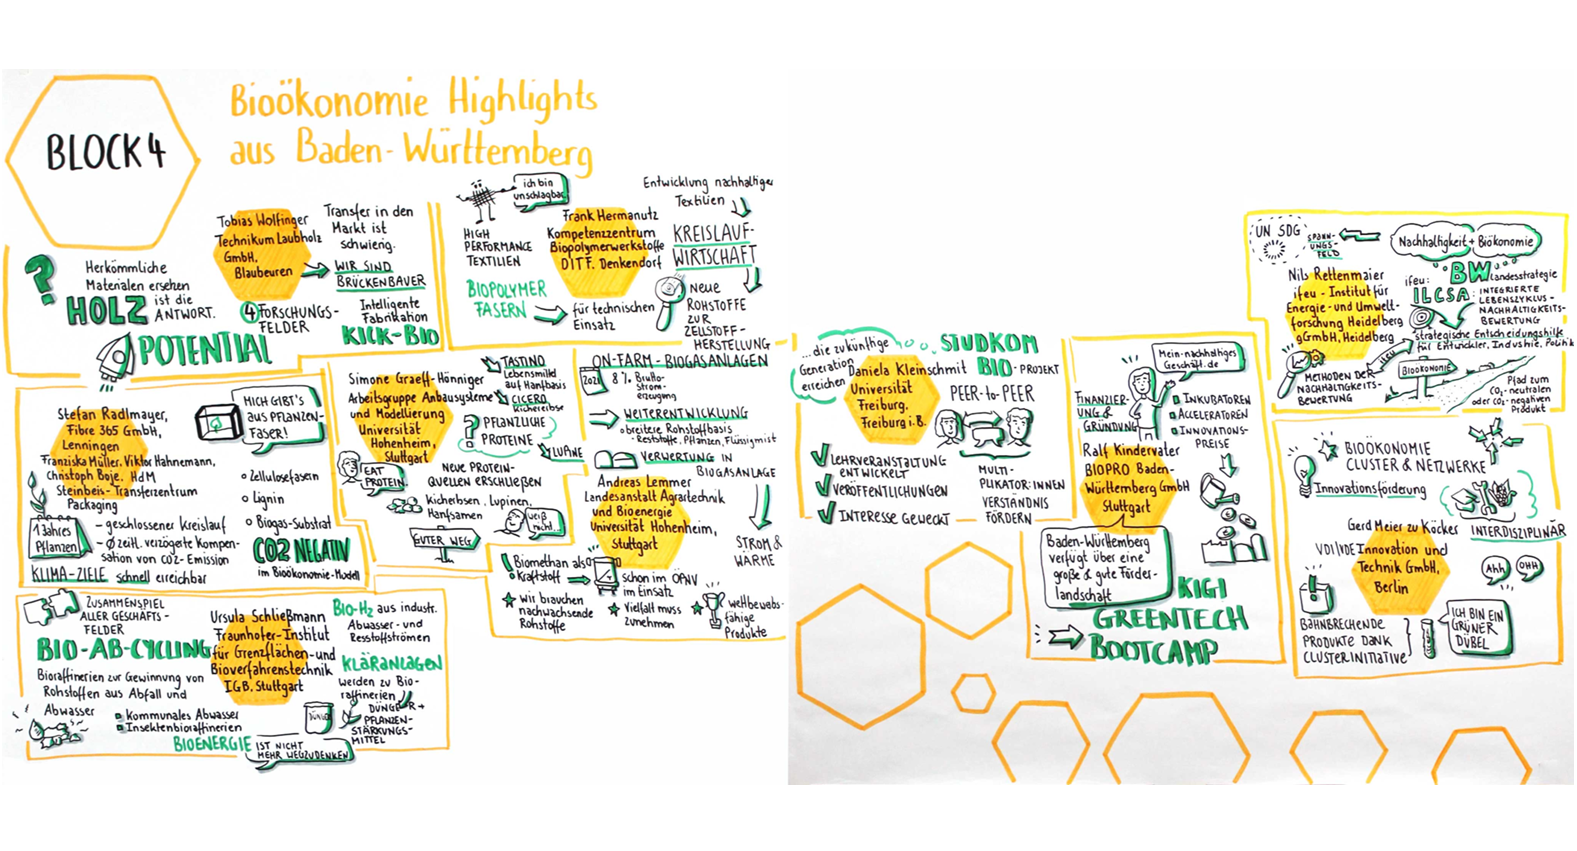 BLOCK 4
Bioökonomie Highlights
aus Baden-Württemberg
?
Herkömmliche
Materialen ersehen
HOLZ ist die
ANTWORT.
POTENTIAL
Tobias Wolfinger
Technikum Laubholz
GmbH,
Blaubeuren
4 FORSCHUNGS-
FELDER
Transfer in den
Markt ist
schwierig.
WIR SIND
BRÜCKENBAUER
Intelligente
Fabrikation
KICK-BIO
ich bin
unschlagbar
HIGH
PERFORMANCE
TEXTILIEN
BIOPOLYMER
FASERN
für technischen
Einsatz
Frank Hermanutz
Kompetenzzentrum
Biopolymerwerkstoffe
DITF. Denkendorf
Entwicklung nachhaltiger
Textilien
KREISLAUF-
WIRTSCHAFT
Neue
ROHSTOFFE
ZUR
ZELLSTOFF-
HERSTELLUNG
Stefan Radlmayer,
Fibre 365 GmbH,
Lenningen
Franziska Müller, Viktor Hahnemann,
Christoph Boje, HdM
Steinbeis-Transferzentrum
Packaging
MICH GIBT'S
aus PFLANZEN-
FASER!
Zellulosefasern
Lignin
Biogas-Substrat
1 Jahres
Pflanzen
- geschlossener Kreislauf
- Ø zeitl. verzögerte Kompen-
sation von CO2-Emission
KLIMA-ZIELE schnell erreichbar
CO2 NEGATIV
im Bioökonomie-Modell
Simone Graeff-Hönniger
Arbeitsgruppe Anbausysteme
und Modellierung
Universität
Hohenheim,
Stuttgart
TASTINO
Lebensmittel
auf Hanfbasis
CICERO
Kichererbse
? PFLANZLICHE
PROTEINE
LUPINE
EAT
PROTEIN
NEUE PROTEIN-
QUELLEN ERSCHLIEßEN
Kichererbsen, Lupinen,
Hanfsamen
GUTER WEG
weiß
nicht..
ON-FARM-BIOGASANLAGEN
2021
8% Brutto-
Strom-
erzeugung
WEITERENTWICKLUNG
breitere Rohstoffbasis
- Reststoffe, Pflanzen, Flüssigmist
VERWERTUNG IN
BIOGASANLAGE
STROM &
WÄRME
Andreas Lemmer
Landesanstalt Agrartechnik
und Bioenergie
Universität Hohenheim,
Stuttgart
! Biomethan als
Kraftstoff
schon im ÖPNV
im Einsatz
Wir brauchen
nachwachsende
Rohstoffe
Vielfalt muss
zunehmen
wettbewerbs-
fähige
Produkte
ZUSAMMENSPIEL
ALLER GESCHÄFTS-
FELDER
BIO-AB-CYCLING
Bioraffinerien zur Gewinnung von
Rohstoffen aus Abfall und
Abwasser
Kommunales Abwasser
Insektenbioraffinerien
BIOENERGIE IST NICHT
MEHR WEGZUDENKEN
Ursula Schließmann
Fraunhofer-Institut
für Grenzflächen- und
Bioverfahrenstechnik
IGB, Stuttgart
BIO-H2 aus industr.
Abwasser- und
Reststoffströmen
KLÄRANLAGEN
werden zu Bio-
raffinerien
DÜNGER +
PFLANZEN-
STÄRKUNGS-
MITTEL
...die zukünftige
Generation
erreichen
Daniela Kleinschmit
Universität
Freiburg.
Freiburg i.B.
STUDKOM
BIO-PROJEKT
PEER-to-PEER
MULTI-
PLIKATOR:INNEN
VERSTÄNDNIS
FÖRDERN
LEHRVERANSTALTUNG
ENTWICKELT
VERÖFFENTLICHUNGEN
INTERESSE GEWECKT
Mein-nachhaltiges
Geschäft.de
FINANZIER-
UNG &
GRÜNDUNG
INKUBATOREN
ACCELERATOREN
INNOVATIONS-
PREISE
Ralf Kindervater
BIOPRO Baden-
Württemberg GmbH
Stuttgart
Baden-Württemberg
verfügt über eine
große & gute Förder-
landschaft
KIGI
GREENTECH
BOOTCAMP
UN SDG
SPANN-
UNGS-
FELD
Nachhaltigkeit + Biökonomie
BW Landesstrategie
Nils Rettenmaier
ifeu - Institut für
Energie- und Umwelt-
forschung Heidelberg
gGmbH, Heidelberg
ifeu:
ILCSA: INTEGRIERTE
LEBENSZYKLUS-
NACHHALTIGKEITS-
BEWERTUNG
strategische Entscheidungshilfe
für Entwickler, Industrie, Politik
METHODEN DER
NACHHALTIGKEITS-
BEWERTUNG
BIOÖKONOMIE
Pfad zum
CO2-neutralen
oder CO2-negativen
Produkt
BIOÖKONOMIE
CLUSTER & NETZWERKE
Innovationsförderung
INTERDISZIPLINÄR
Gerd Meier zu Köcker
VDI/VDE Innovation und
Technik GmbH,
Berlin
Ahh
OHH
BAHNBRECHENDE
PRODUKTE DANK
CLUSTERINITIATIVE
ICH BIN EIN
GRÜNER
DÜBEL